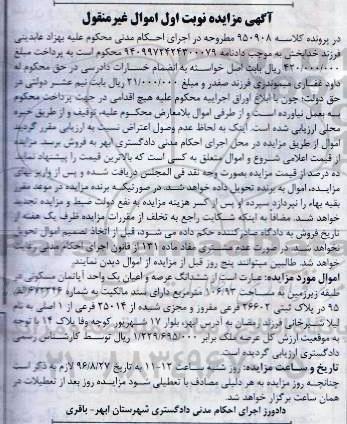 آگهی مزایده نوبت اول اموال غیرمنقول
در پرونده کلاسه ۹۵۰۹۰۸ مطروحه در اجرای احکام مدنی محکوم علیه بهزاد عابدینی
فرزند خدابخش به موجب دادنامه ۹۴۰۹۹۷۲۴۲۴۳۰۰۰۷۹ محکوم است به پرداخت مبلغ
۴۲۰/۰۰۰/۰۰۰ ریال بابت اصل خواسته به انضمام خسارات دادرسی در حق محکوم له
داود غفاری میموندزی فرزند صفدر و مبلغ ۲۱/۰۰۰/۰۰۰ ریال بابت نیم عشر دولتی در
حق دولت؛ چون با ابلاغ اوراق اجراییه محکوم علیه هیچ اقدامی در جهت پرداخت محکوم
به بعمل نیاورده است و از طرفی اموال بلامعارض محکوم علیه، توقیف و از طریق خبره
محلی ارزیابی شده است. اینک به لحاظ عدم وصول اعتراض نسبت به ارزیابی مقرر گردید
اموال از طریق مزایده در محل اجرای احکام مدنی دادگستری ابهر به فروش برسد. مزایده
از قیمت اعلامی شروع و اموال متعلق به کسی است که بالاترین قیمت را پیشنهاد نماید.
ده درصد از قیمت مزایده بصورت وجه نقد فی المجلس دریافت شده و پس از واریز بهای
مزایده، اموال به برنده تحویل داده خواهد شد. در صورتیکه برنده مزایده در موعد مقرر
بقیه بهاء را نپردازد سپرده او پس از کسر هزینه مزایده به نفع دولت ضبط و مزایده تجدید
خواهد شد. مضافا به اینکه شکایت راجع به تخلف از مقررات مزایده ظرف یک هفته از
تاریخ فروش به دادگاه صادرکننده حکم داده می شود، قبل از اتخاذ تصمیم اموال تحویل
نخواهد شد. در صورت عدم مفاد ماده ۱۳۱ از قانون اجرای احکام مدنی رعایت
خواهد شد. طالبین میتوانند پنج روز قبل از مزایده از اموال دیدن نمایند.
اموال مورد مزایده: عبارت است از ششدانگ عرصه و اعیان یک واحد آپاتمان مسکونی در
طبقه زیرزمین به مساحت ۱۰۶/۹۳ مترمربع دارای سند مالکیت به شماره ۶۷۲۲۴۶ الف
۹۵ در پلاک ثبتی ۲۶۶۰۲ فرعی مفروز و مجزی شده از ۲۵۰۱۴ فرعی از ۱ اصلی به نام
لیلا شیرخانی فرزند رمضان به آدرس ابهر، بلوار ۱۷ شهریور، کوچه وفا پلاک ۱۴ با توجه
به موقعیت ارزش کل عرصه ملک برابر ۱/۲۲۹/۶۹۵/۰۰۰ ریال توسط کارشناس رسمی
دادگستری ارزیابی گردیده است.
تاریخ و ساعت مزایده: روز شنبه ساعت ۱۲-۱۱ به تاریخ ۹۶/۸/۲۷ لازم به ذکر است
چنانچه روز مزایده به هر دلیلی مصادف با تعطیلی شود مزایده روز بعد از تعطیلات در
همان ساعت برگزار خواهد شد.
دادورز اجرای احکام مدنی دادگستری شهرستان ابهر- باقری